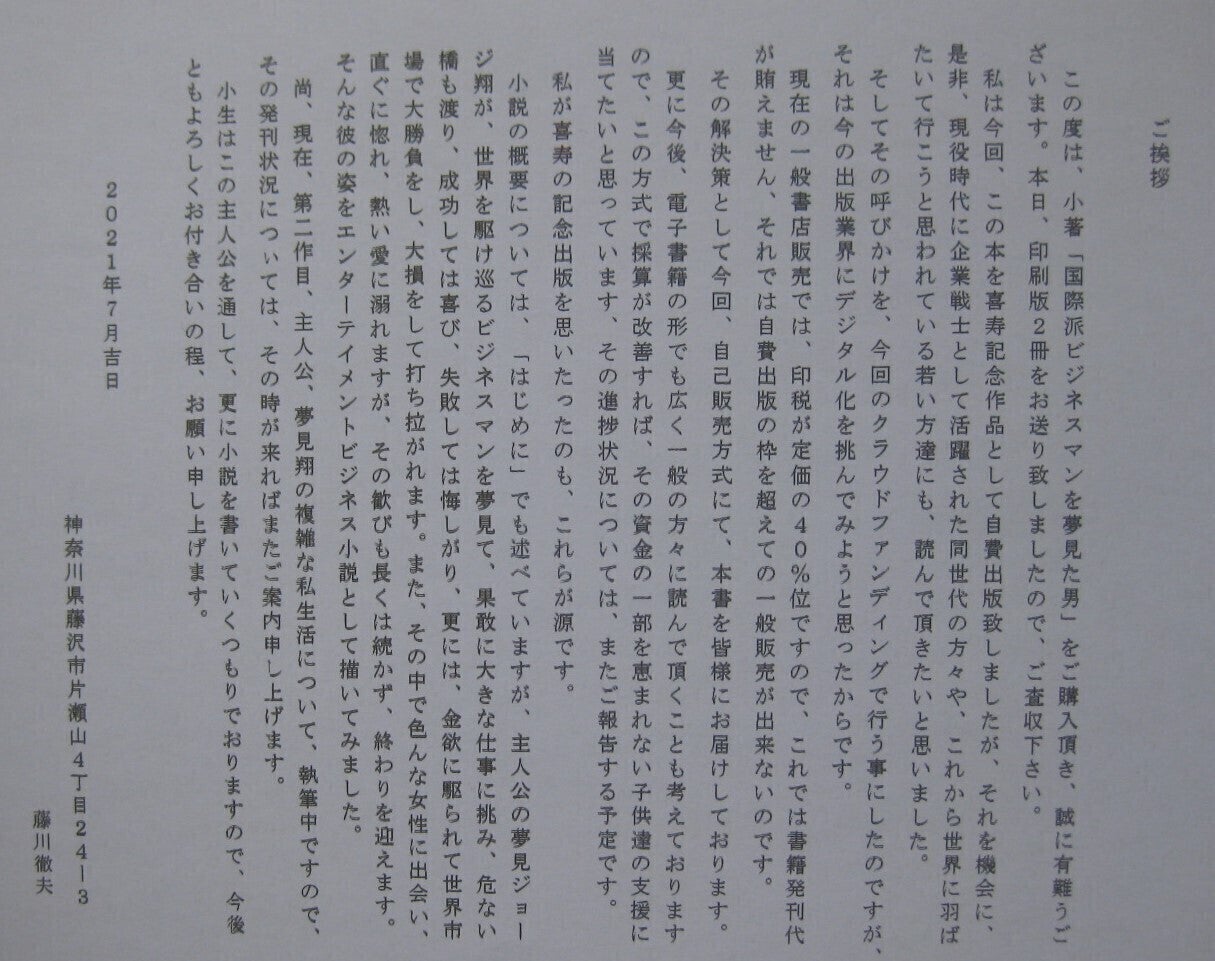 ご挨拶
この度は、小著「国際派ビジネスマンを夢見た男」をご購入頂き、誠に有難うご
ざいます。本日、印刷版２冊をお送り致しましたので、ご査収下さい。
私は今回、この本を喜寿記念作品として自費出版致しましたが、それを機会に、
是非、現役時代に企業戦士として活躍された同世代の方々や、これから世界に羽ば
たいて行こうと思われている若い方達にも、読んで頂きたいと思いました。
そしてその呼びかけを、今回のクラウドファンディングで行う事にしたのですが、
それは今の出版業界にデジタル化を挑んでみようと思ったからです。
現在の一般書店販売では、印税が定価の４０％位ですので、これでは書籍発刊代
が賄えません、それでは自費出版の枠を超えての一般販売が出来ないのです。
その解決策として今回、自己販売方式にて、本書を皆様にお届けしております。
更に今後、電子書籍の形でも広く一般の方々に読んで頂くことも考えております
ので、この方式で採算が改善すれば、その資金の一部を恵まれない子供達の支援に
当てたいと思っています、その進捗状況については、またご報告する予定です。
私が喜寿の記念出版を思いたったのも、これらが源です。
小説の概要については、「はじめに」でも述べていますが、主人公の夢見ジョー
ジ翔が、世界を駆け巡るビジネスマンを夢見て、果敢に大きな仕事に挑み、危ない
橋も渡り、成功しては喜び、失敗しては悔しがり、更には、金欲に駆られて世界市
場で大勝負をし、大損をして打ち拉がれます。また、その中で色んな女性に出会い、
直ぐに惚れ、熱い愛に溺れますが、その歓びも長くは続かず、終わりを迎えます。
そんな彼の姿をエンターテイメントビジネス小説として描いてみました。
尚、現在、第二作目、主人公、夢見翔の複雑な私生活について、執筆中ですので、
その発刊状況については、その時が来ればまたご案内申し上げます。
小生はこの主人公を通して、更に小説を書いていくつもりでおりますので、今後
ともよろしくお付き合いの程、お願い申し上げます。
２０２１年７月吉日
神奈川県藤沢市片瀬山４丁目２４ー３
藤川徹夫